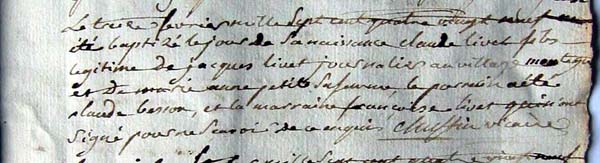 Le treize fevrier mille sept cent quatre vingt neuf a
été baptizé le jour de sa naissance claude livet fils
legitime de jacques livet journalier au village
et de marie anne petit sa femme, le parrain a été
claude besson, et la marraine francoise livet qui n'ont
signé pour ne sçavoir de ce enquis vicaire